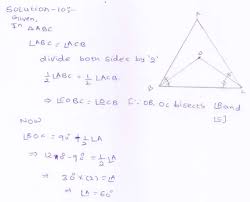 Solution-10:-
Given,
In △ABC
∠ABC = ∠ACB
divide both sides by '2'
1/2 ∠ABC = 1/2 ∠ACB
⇒ ∠OBC = ∠OCB [∵ OB, OC bisects ∠B and
∠C]
Now
∠BOC = 90° + 1/2 ∠A
⇒ 120° - 90° = 1/2 ∠A
⇒ 30° × (2) = ∠A
⇒ ∠A = 60°
A
O
B
C